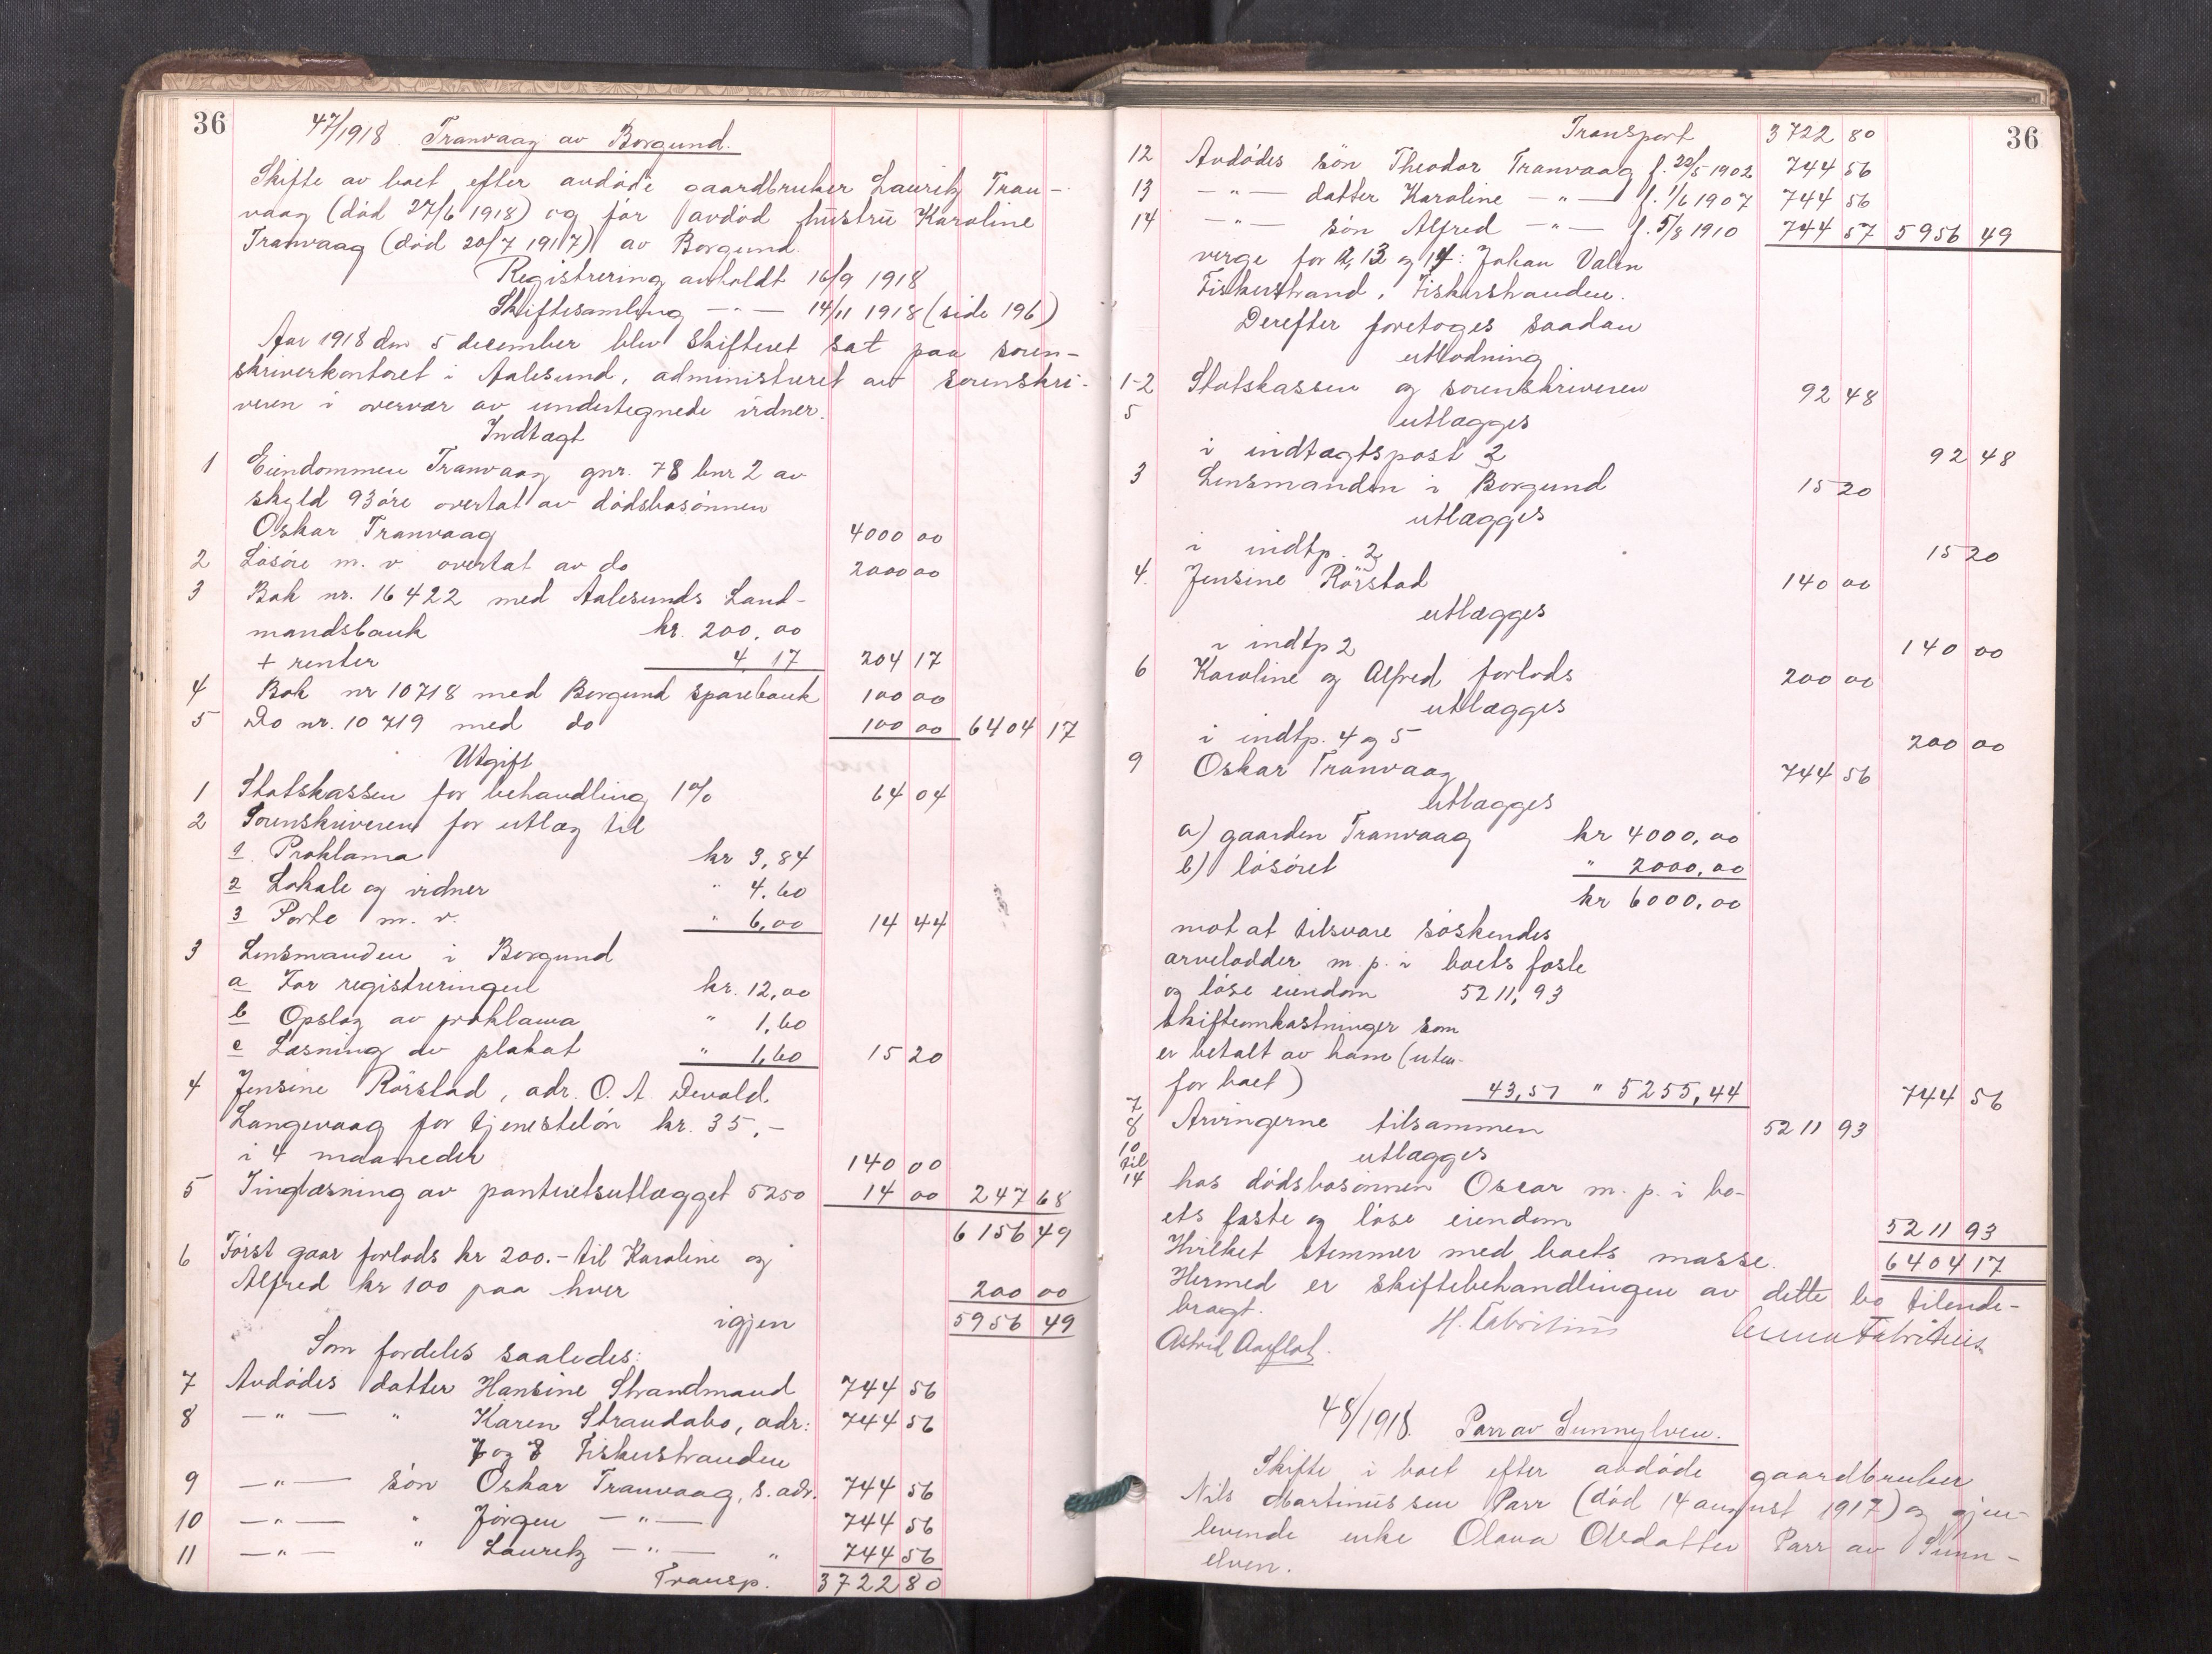 36
47/1918. Tranvaag av Borgund.
Skifte av boet efter avdøde gaardbruker Lauritz Tran-
vaag (død 27/6 1918) og før avdød hustru Karoline
Tranvaag (død 20/7 1917) av Borgund.
Registrering avholdt 16/9 1918
Skiftesamling —"— 14/11 1918 (side 196)
Aar 1918 den 5 december blev skifteret sat paa soren-
skriverkontoret i Aalesund, administreret av sorenskri-
veren i overvær av undertegnede vidner.
Indtægt
1 Eiendommen Tranvaag gnr. 78 bnr 2 av
skyld 93 øre overtat av dødsbosønnen
Oskar Tranvaag 4000 00
2 Løsøre m. v overtat av do 2000 00
3 Bok nr. 16422 med Aalesunds Land-
mandsbank kr. 200,00
+ renter 4 17 204 17
4 Bok nr 10718 med Borgund sparebank 100 00
5 Do nr. 10719 med do 100 00 6404 17
Utgift
1 Statskassen for behandling 1% 64 04
2 Sorenskriveren for utlæg til
1. Proklama kr 3,84
2 Lokale og vidner " 4.60
3 Porto m. v. " 6,00 14 44
3 Lensmanden i Borgund
a For registreringen kr. 12,00
b Opslag av proklama " 1,60
c Læsning av plakat " 1,60 15 20
4 Jensine Rørstad, adr. O. A. Devold,
Langevaag for tjenesteløn kr. 35,-
i 4 maaneder 140 00
5 Tinglæsning av panteretsutlægget 5250 14 00 247 68
6156 49
6 Først gaar forlods kr 200.- til Karoline og
Alfred kr 100 paa hver 200 00
igjen 5956 49
Som fordeles saaledes:
7 Avdødes datter Hansine Strandmand 744 56
8 —"— " Karen Strandabo, adr: 744 56
7 og 8 Fiskerstranden
9 —"— søn Oskar Tranvaag, s. adr. 744 56
10 —"— " Jørgen —"— 744 56
11 —"— " Lauritz —"— " 744 56
Transp. 3722 80
36
Transport 3722 80
12 Avdødes søn Theodor Tranvaag f. 22/5 1902 744 56
13 —"— datter Karoline —"— f. 1/6 1907 744 56
14 —"— søn Alfred —"— f. 5/8 1910 744 57 5956 49
verge for 12, 13 og 14: Johan Valen
Fiskerstrand, Fiskerstranden.
Derefter foretoges saadan
utlodning
1-2 Statskassen og sorenskriveren 92 48
5 utlægges
i indtægtspost 2 92 48
3 Lensmanden i Borgund 15 20
utlægges
i indtp. 2 15 20
4. Jensine Rørstad 140 00
utlægges
i indtp 2 140 00
6 Karoline og Alfred forlods 200 00
utlægges
i indtp. 4 og 5 200 00
9 Oskar Tranvaag 744 56
utlægges
a) gaarden Tranvaag kr 4000,00
b) løsøret " 2000,00
kr 6000,00
mot at tilsvare søskendes
arvelodder m. p. i boets faste
og løse eiendom 5211,93
skifteomkostninger som
er betalt av ham (uten-
for boet) 43,51 " 5255,44 744 56
7
8 Arvingerne tilsammen 5211 93
10 utlægges
til
14 hos dødsbosønnen Oscar m. p. i bo-
ets faste og løse eiendom 5211 93
Hvilket stemmer med boets masse. 6404 17
Hermed er skiftebehandlingen av dette bo tilende-
bragt.
H. Fabritius Anna Fabritius
Astrid Aarflot.
48/1918. Parr av Sunnylven.
Skifte i boet efter avdøde gaardbruker
Nils Martinussen Parr (død 14 august 1917) og gjen-
levende enke Olava Olsdatter Parr av Sunn-
elven.